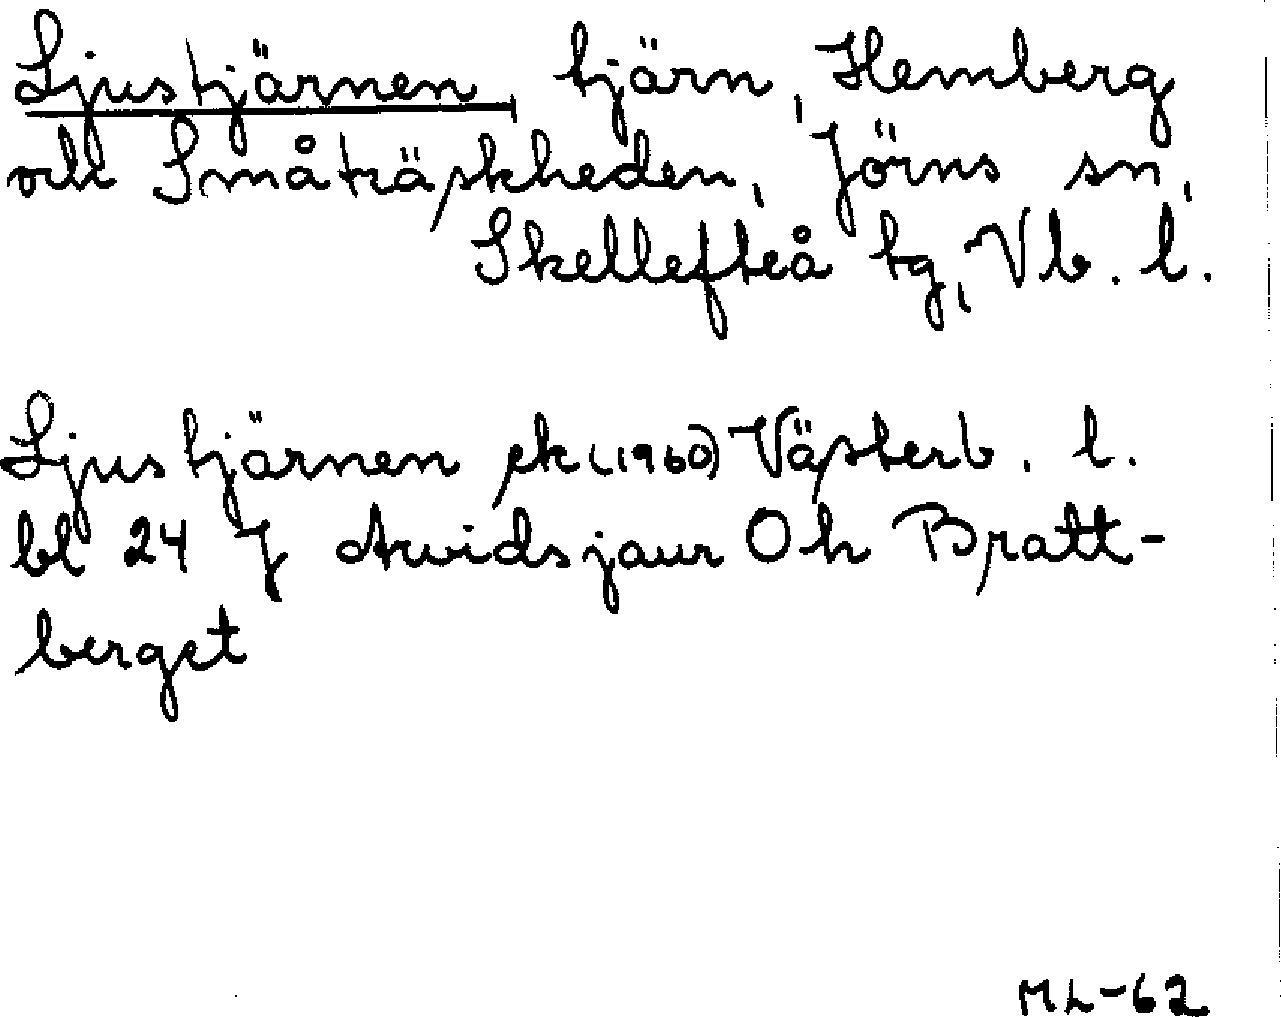 Ljustjärnen, tjärn, Hemberg
och Småträskheden, Jörns sn,
Skellefteå tg, Vb. l.
Ljustjärnen ek (1960) Västerb. l.
bl 24 J Arvidsjaur Oh Bratt-
berget
ML-62